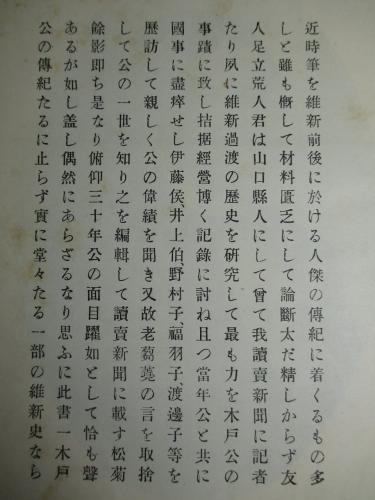 近時筆を維新前後に於ける人傑の傳紀に着くるもの多
しと雖も概して材料匱乏にして論斷太だ精しからず友
人足立荒人君は山口縣人にして曾て我讀賣新聞に記者
たり夙に維新過渡の歷史を硏究して最も力を木戸公の
事蹟に致し拮据經營博く記錄に討ね且つ當年公と共に
國事に盡瘁せし伊藤侯、井上伯、野村子、福羽子、渡邊子等を
歷訪して親しく公の偉績を聞き又故老蒭蕘の言を取捨
して公の一世を知り之を編輯して讀賣新聞に載す松菊
餘影即ち是なり俯仰三十年公の面目躍如として恰も聲
あるが如し盖し偶然にあらざるなり思ふに此書一木戸
公の傳紀たるに止らず實に堂々たる一部の維新史なら